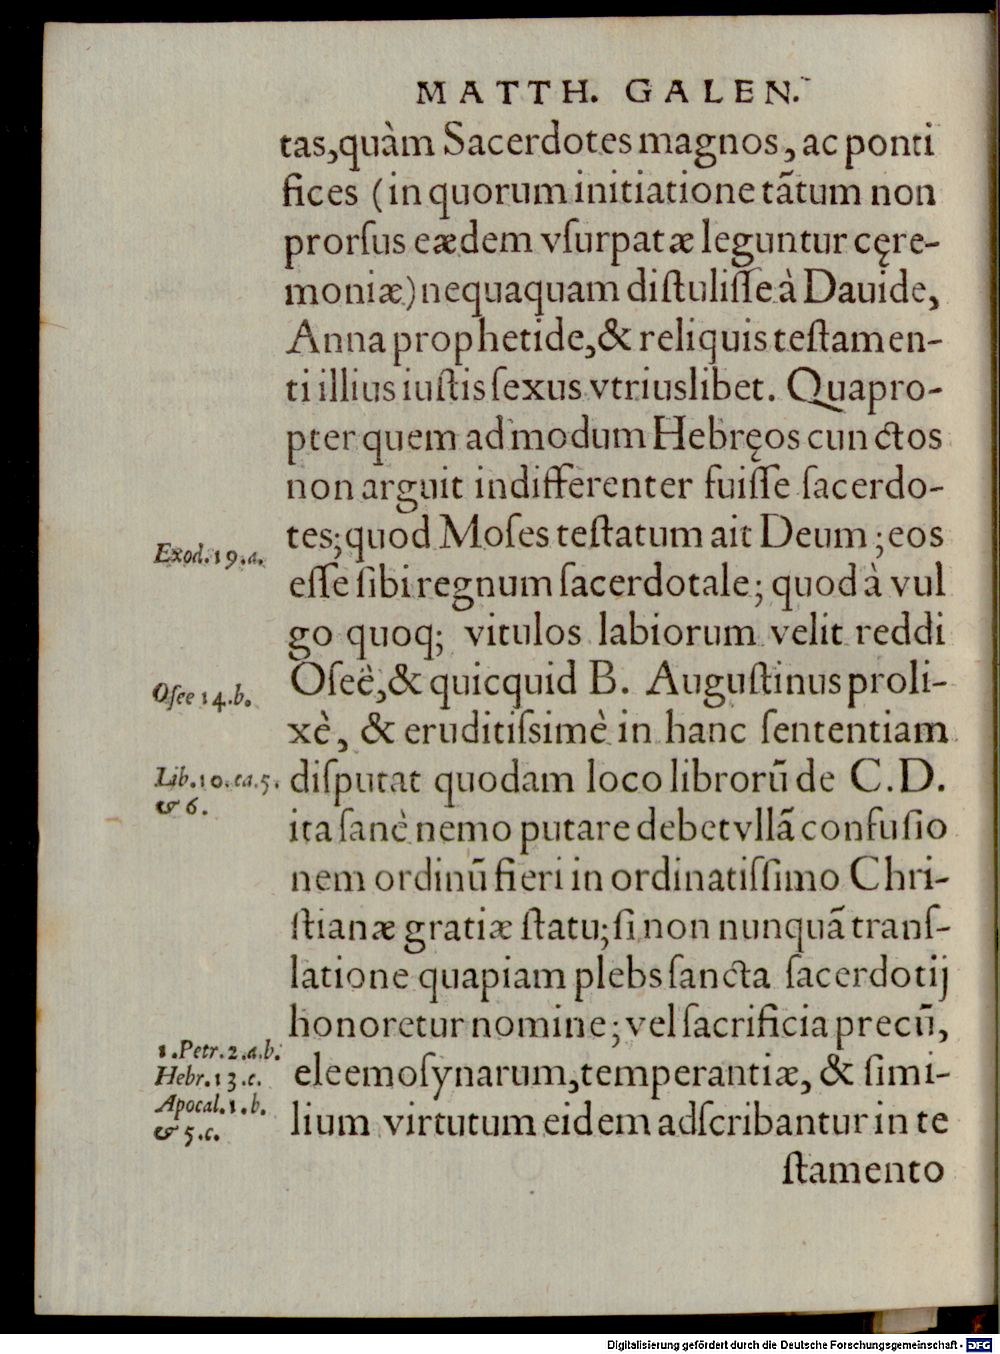 MATTH. GALEN.
tas,quàm Sacerdotes magnos, ac ponti
fices (in quorum initiatione tãtum non
prorſus eædem vſurpatæ leguntur cęre-
moniæ) nequaquam diſtuliſſe à Dauide,
Anna prophetide,& reliquis teſtamen-
ti illius iuſtis ſexus vtriuslibet. Quapro-
pter quem ad modum Hebręos cunctos
non arguit indifferenter fuiſſe ſacerdo-
tes; quod Moſes teſtatum ait Deum; eos
Exod.19.a.
eſſe ſibi regnum ſacerdotale; quod à vul
go quoq; vitulos labiorum velit reddi
Oſeë,& quicquid B. Auguſtinus proli-
Oſee 14.b.
xè, & eruditiſsimè in hanc ſententiam
diſputat quodam loco librorũ de C.D.
Lib.10.ca.5.
& 6.
ita ſanè nemo putare debet vllã confuſio
nem ordinũ fieri in ordinatiſſimo Chri-
ſtianæ gratiæ ſtatu; ſi non nunquã tranſ-
latione quapiam plebs ſancta ſacerdotij
honoretur nomine; vel ſacrificia precũ,
1.Petr.2.a.b.
Hebr.13.c.
eleemoſynarum,temperantiæ, & ſimi-
Apocal.1.b.
& 5.c.
lium virtutum eidem adſcribantur in te
ſtamento
Digitalisierung gefördert durch die Deutsche Forschungsgemeinschaft - DFG